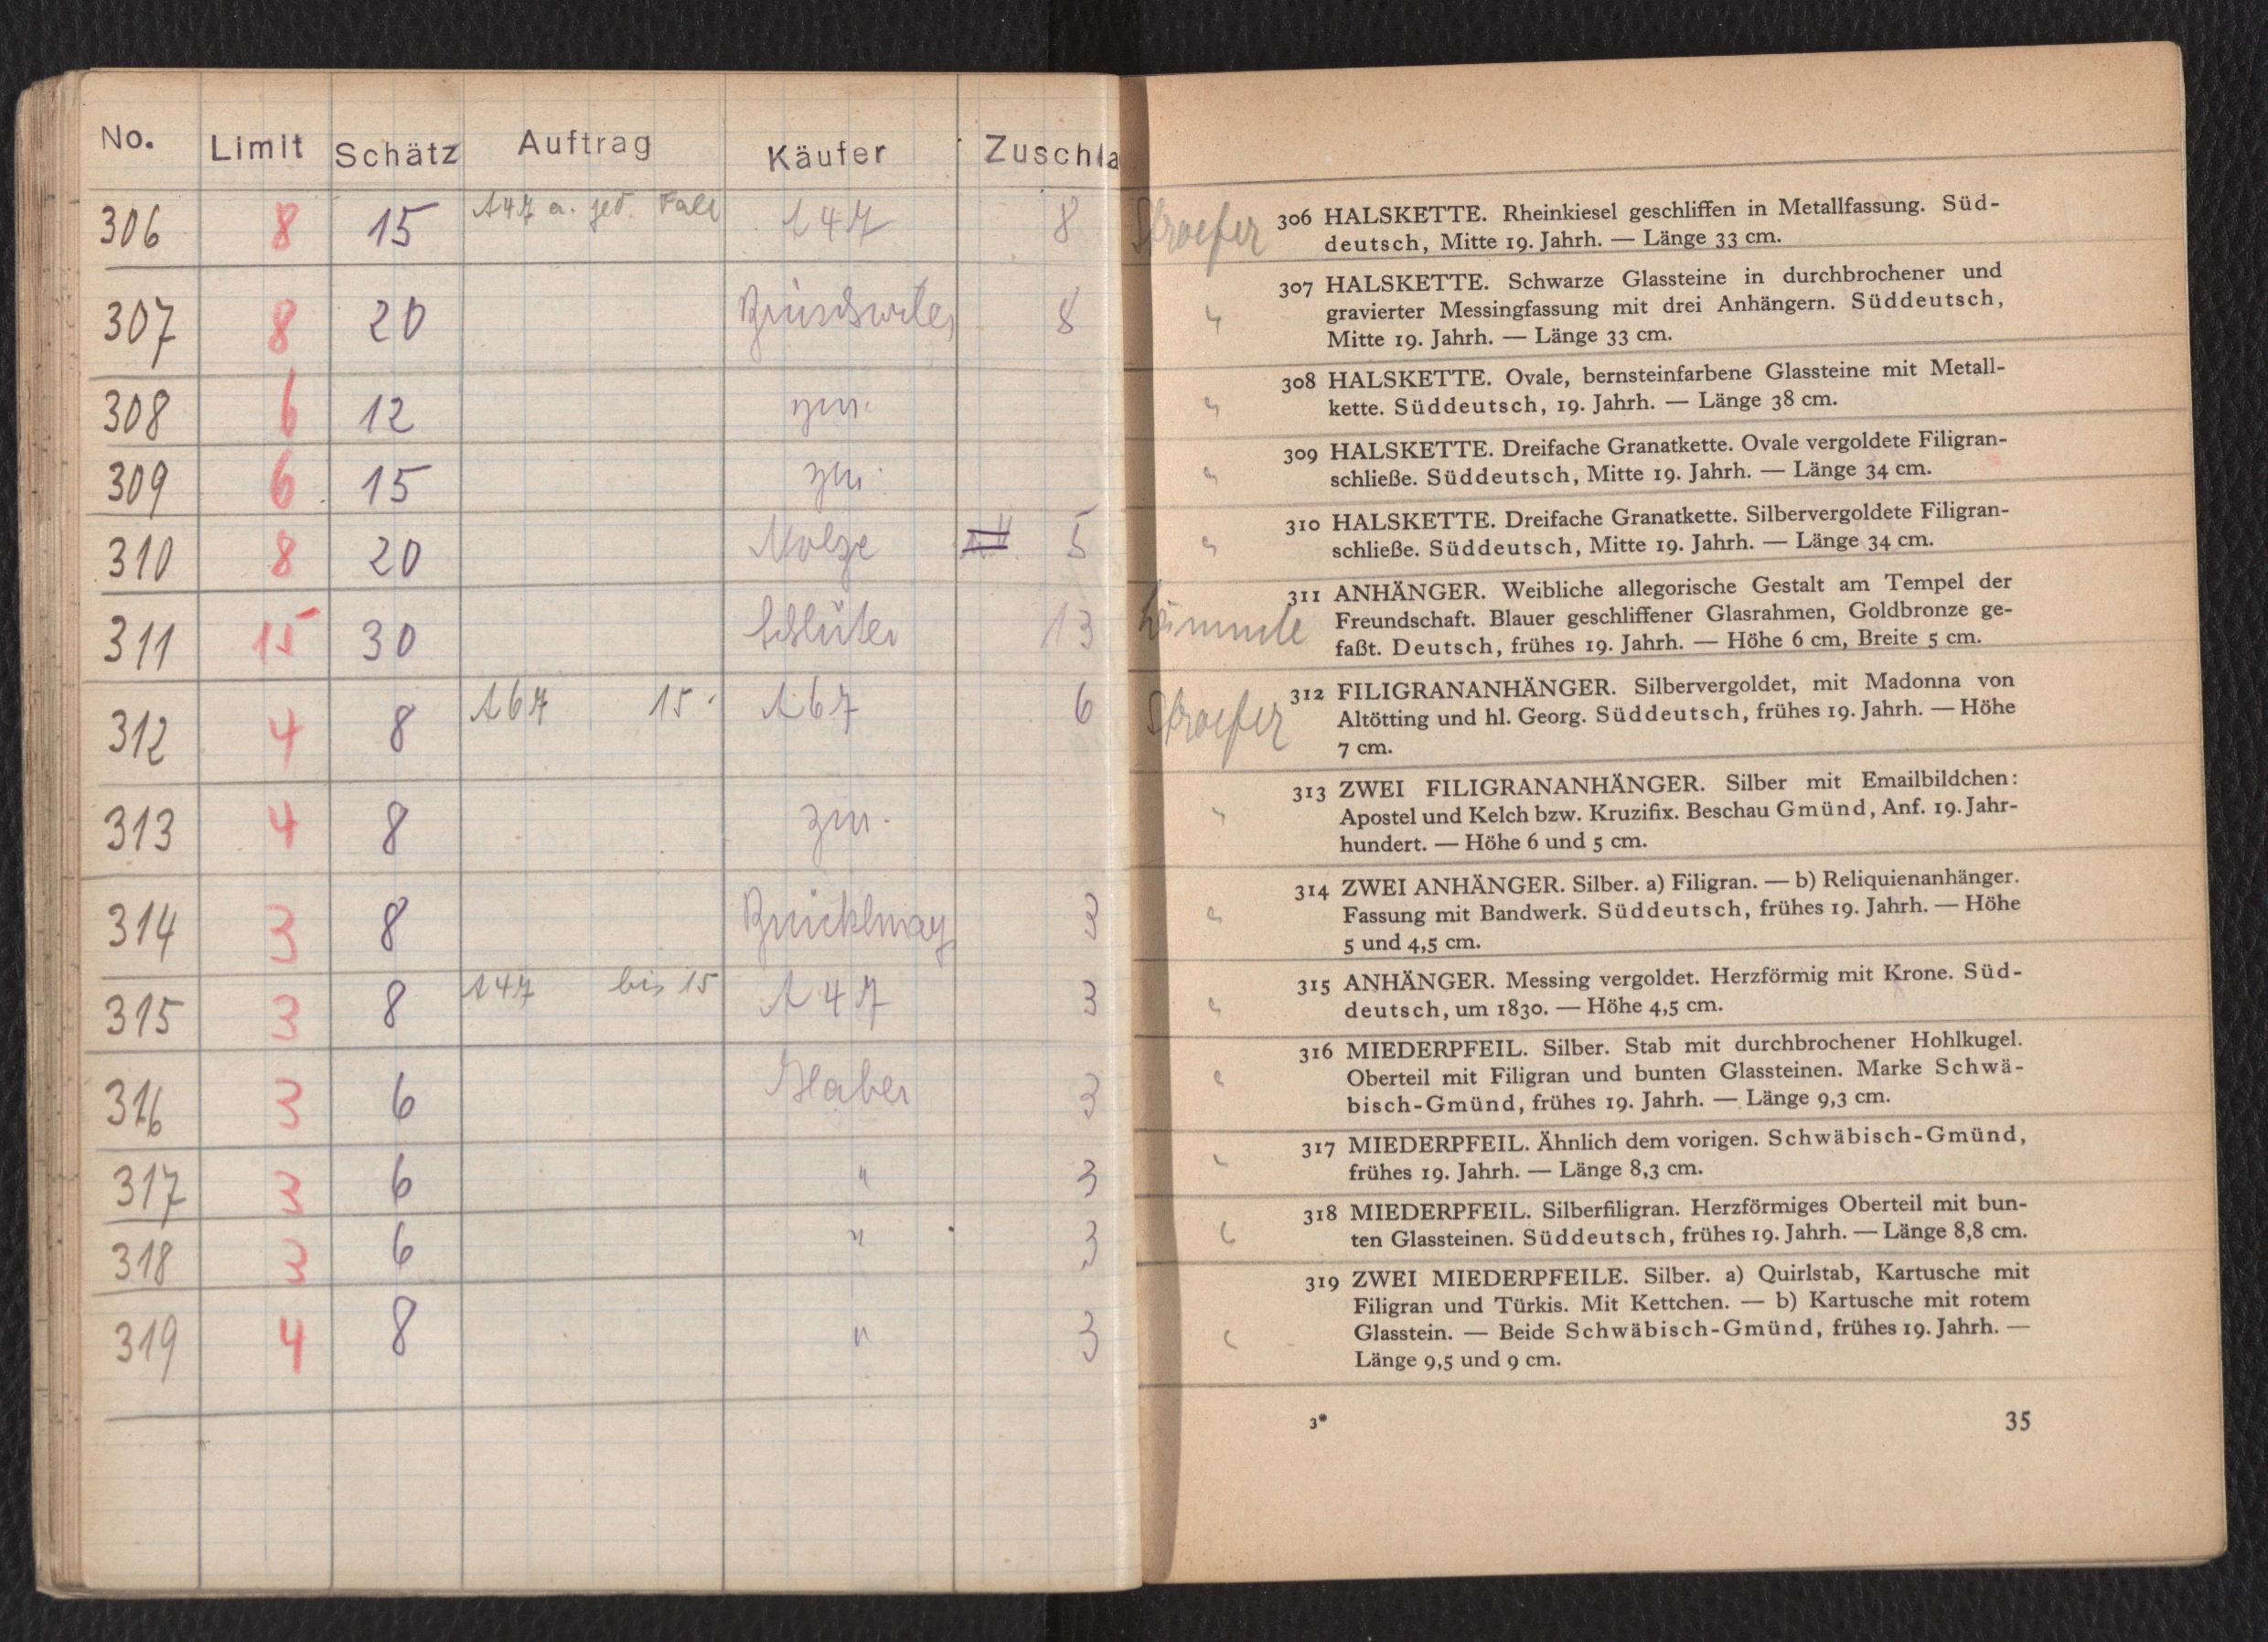 No. Limit Schätz Auftrag Käufer Zuschla
306 8 15 A47 a. jed. Fall A47 8
307 8 20 8
308 6 12 zur.
309 6 15 zur.
310 8 20 Nolze 5
311 15 30 Schlüter 13
312 4 8 A67 15. A67 6
313 4 8 zur.
314 3 8 Brücklmay 3
315 3 8 A47 bis 15 A47 3
316 3 6 Haber 3
317 3 6 " 3
318 3 6 " 3
319 4 8 " 3
Stroefer 306 HALSKETTE. Rheinkiesel geschliffen in Metallfassung. Süd-
deutsch, Mitte 19. Jahrh. — Länge 33 cm.
307 HALSKETTE. Schwarze Glassteine in durchbrochener und
" gravierter Messingfassung mit drei Anhängern. Süddeutsch,
Mitte 19. Jahrh. — Länge 33 cm.
308 HALSKETTE. Ovale, bernsteinfarbene Glassteine mit Metall-
" kette. Süddeutsch, 19. Jahrh. — Länge 38 cm.
309 HALSKETTE. Dreifache Granatkette. Ovale vergoldete Filigran-
" schließe. Süddeutsch, Mitte 19. Jahrh. — Länge 34 cm.
310 HALSKETTE. Dreifache Granatkette. Silbervergoldete Filigran-
" schließe. Süddeutsch, Mitte 19. Jahrh. — Länge 34 cm.
311 ANHÄNGER. Weibliche allegorische Gestalt am Tempel der
Freundschaft. Blauer geschliffener Glasrahmen, Goldbronze ge-
faßt. Deutsch, frühes 19. Jahrh. — Höhe 6 cm, Breite 5 cm.
Stroefer 312 FILIGRANANHÄNGER. Silbervergoldet, mit Madonna von
Altötting und hl. Georg. Süddeutsch, frühes 19. Jahrh. — Höhe
7 cm.
313 ZWEI FILIGRANANHÄNGER. Silber mit Emailbildchen:
" Apostel und Kelch bzw. Kruzifix. Beschau Gmünd, Anf. 19. Jahr-
hundert. — Höhe 6 und 5 cm.
314 ZWEI ANHÄNGER. Silber. a) Filigran. — b) Reliquienanhänger.
" Fassung mit Bandwerk. Süddeutsch, frühes 19. Jahrh. — Höhe
5 und 4,5 cm.
315 ANHÄNGER. Messing vergoldet. Herzförmig mit Krone. Süd-
" deutsch, um 1830. — Höhe 4,5 cm.
316 MIEDERPFEIL. Silber. Stab mit durchbrochener Hohlkugel.
" Oberteil mit Filigran und bunten Glassteinen. Marke Schwä-
bisch-Gmünd, frühes 19. Jahrh. — Länge 9,3 cm.
317 MIEDERPFEIL. Ähnlich dem vorigen. Schwäbisch-Gmünd,
" frühes 19. Jahrh. — Länge 8,3 cm.
318 MIEDERPFEIL. Silberfiligran. Herzförmiges Oberteil mit bun-
" ten Glassteinen. Süddeutsch, frühes 19. Jahrh. — Länge 8,8 cm.
319 ZWEI MIEDERPFEILE. Silber. a) Quirlstab, Kartusche mit
Filigran und Türkis. Mit Kettchen. — b) Kartusche mit rotem
" Glasstein. — Beide Schwäbisch-Gmünd, frühes 19. Jahrh. —
Länge 9,5 und 9 cm.
3* 35